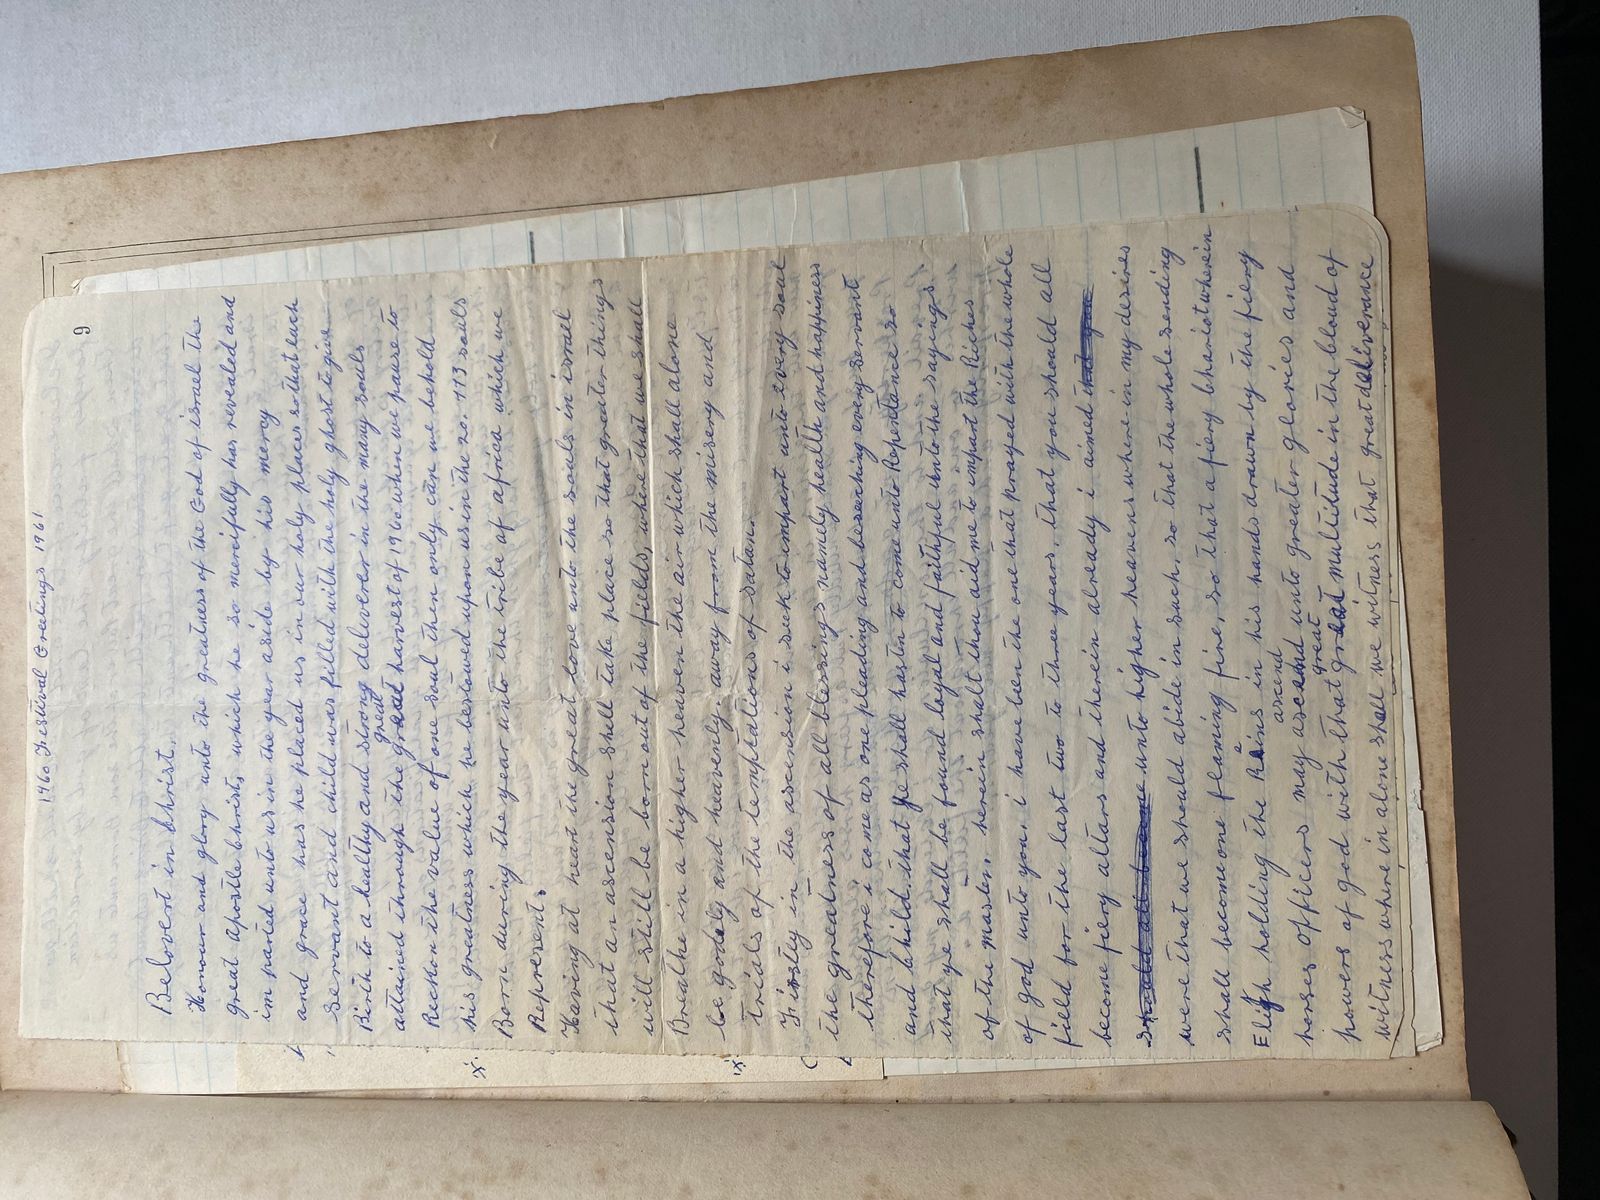 1960 Festival Greetings 1961
9
Belovest in bhrist.
Honour and glory unto the greatness of the God of israel the
great apostle bhrist, which he so mercifully has revealed and
im parted unto us in the year aside by his mercy
and grace has he placed us in our holy places so that each
Servant and child was filled with the holy ghost to give
Birth to a healthy and strong deloverer in the many souls
great
attained through the great harvest of 1960 when we pause to
Reckon the value of one soul then only can we behold
his greatness which he bestowed upon us in the 20.773 souls
Born during the year unto the tribe of africa which we
Represent.
Having at heart the great love unto the souls in israel
that an ascension shell take place so that greater things
will still be born out of the fields, where that we shall
Breathe in a higher heaven the air which shall alone
be godely and heavenly. away from the misery and
trials of the temptations of satan.
Firstly in the ascension i seek to impart unto every soul
the greatness of all blessings namely health and happiness
therefore i come as one pleading and beseeching every servant
and bhild that ye shall hastn to come unto Repentance so
that ye shall be found loyal and faithful unto the sayings
of the master. herein shalt thou aid me to impart the Riches
of god unto you. i have been the one that prayed with the whole
field for the last two to three years. that you should all
become fiery altars and therein already i aimed that you
should all become unto higher heavens where in my desires
were that we should abide in such. so that the whole sending
shall become one flaming fire, so that a fiery bhariot wherein
Eligh holding the Reins in his hands drawn by the fiery
ascend
horses officers may ascend unto greater glories and
great
powers of god with that great multitude in the bloud of
witness where in alone shall we witness that great deliverance